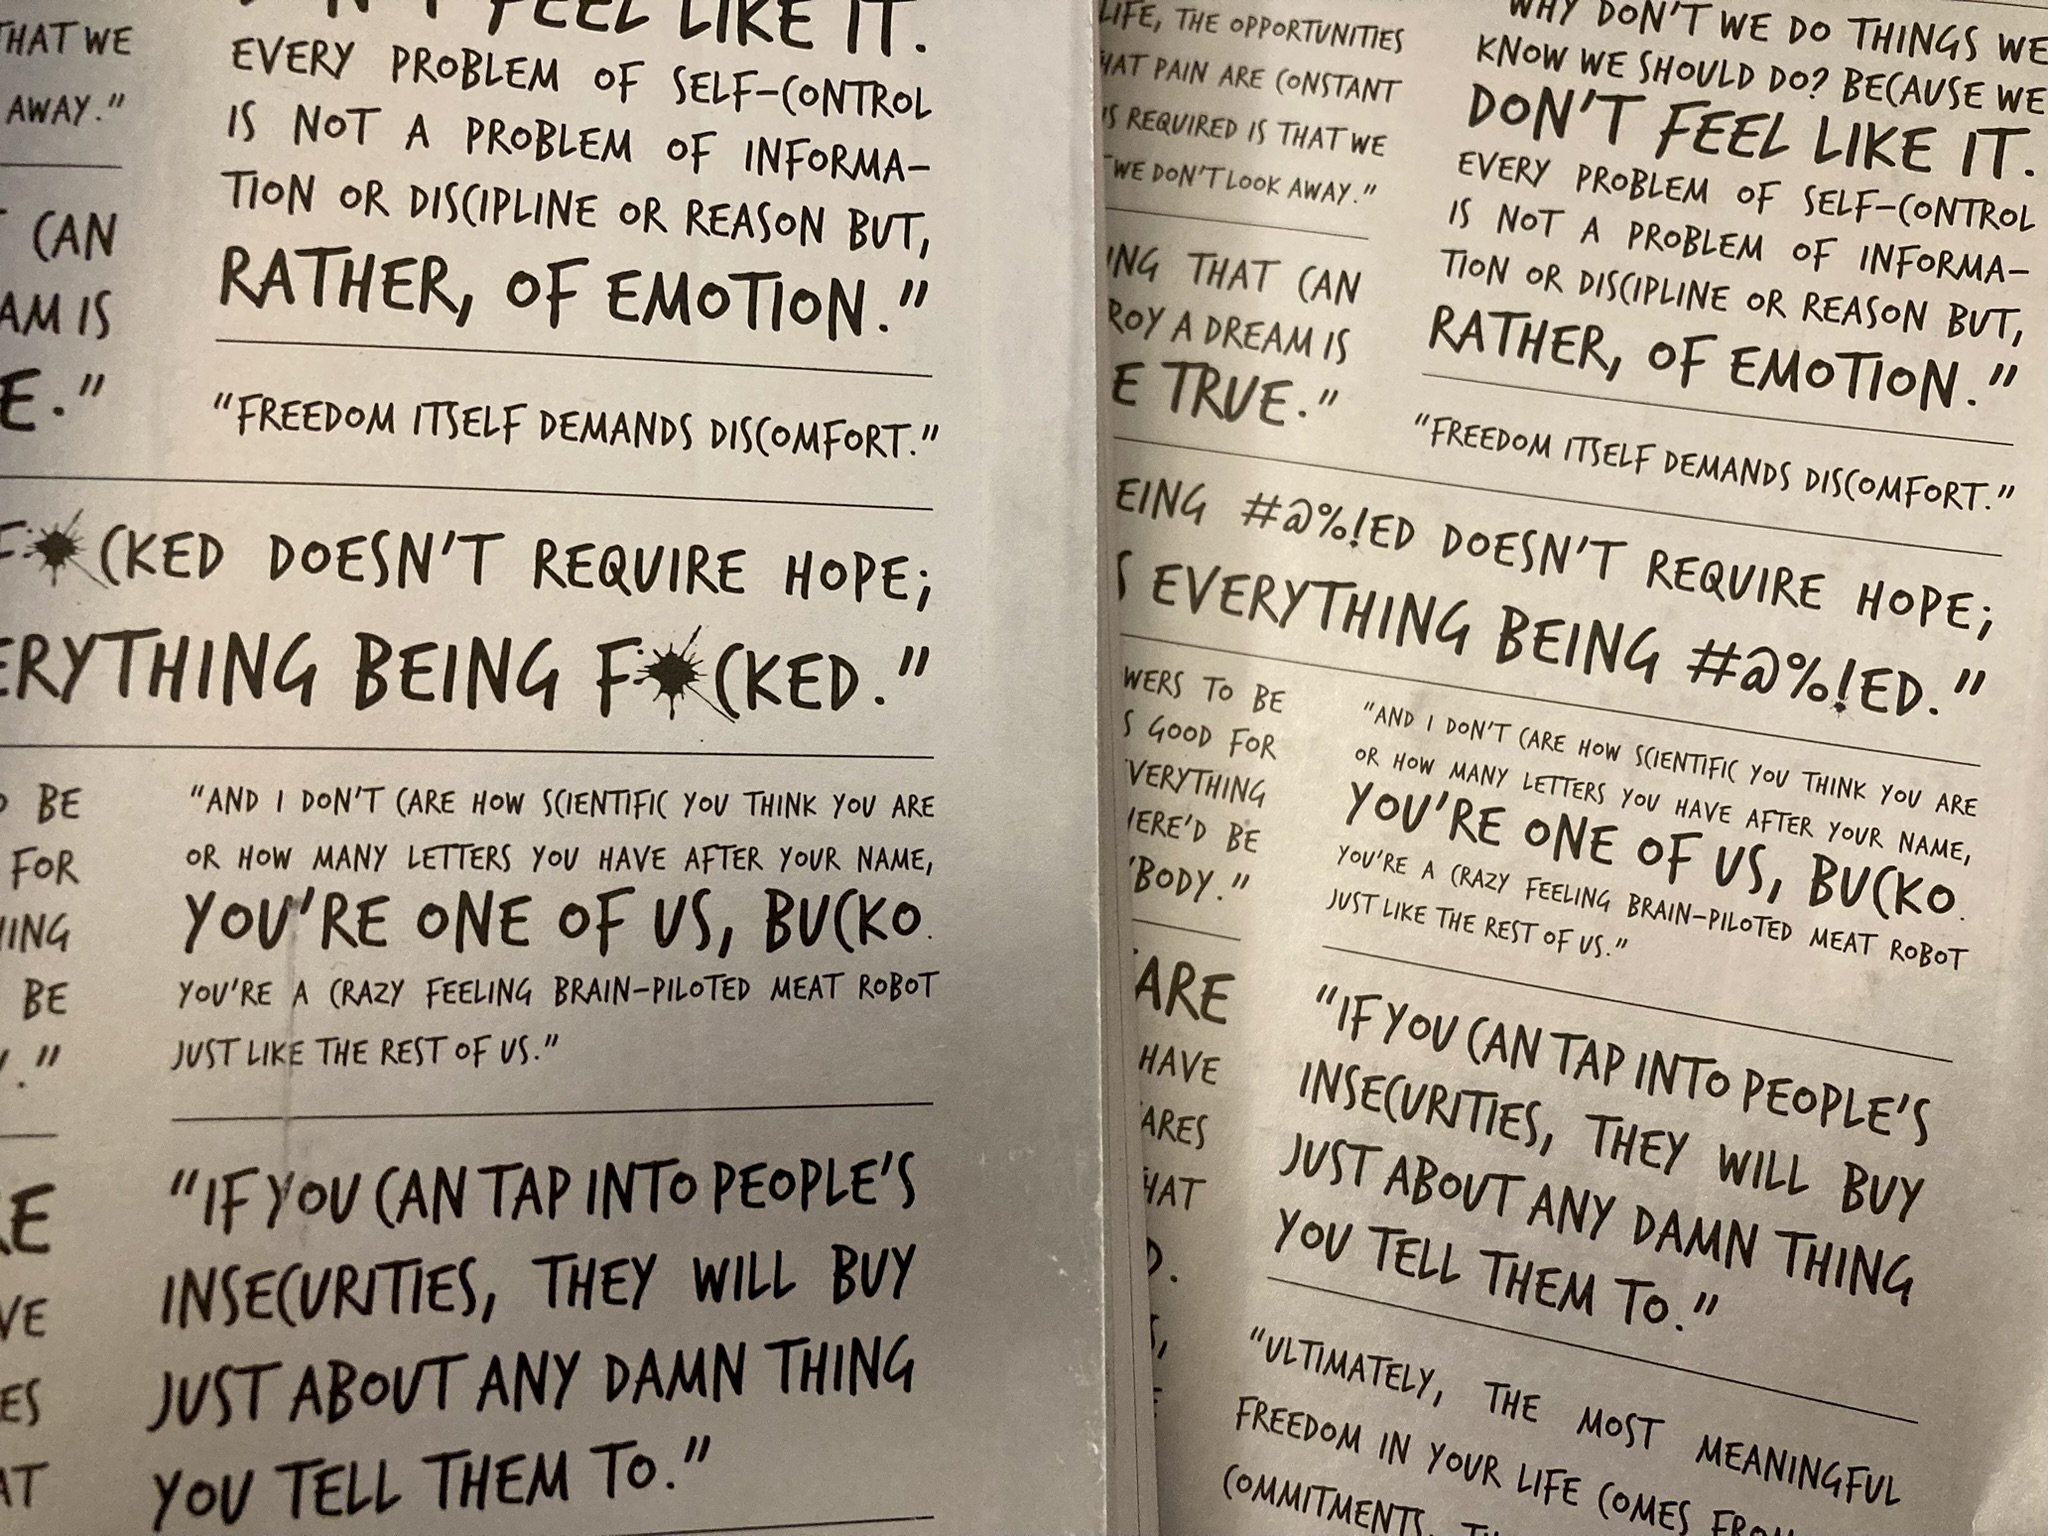 THAT WE
AWAY."
CAN
AM IS
E."
DON'T FEEL LIKE IT.
EVERY PROBLEM OF SELF-CONTROL
IS NOT A PROBLEM OF INFORMA-
TION OR DISCIPLINE OR REASON BUT,
RATHER, OF EMOTION."
"FREEDOM ITSELF DEMANDS DISCOMFORT."
F*CKED DOESN'T REQUIRE HOPE;
ERYTHING BEING F*CKED."
BE
FOR
HING
BE
."
"AND I DON'T CARE HOW SCIENTIFIC YOU THINK YOU ARE
OR HOW MANY LETTERS YOU HAVE AFTER YOUR NAME,
YOU'RE ONE OF US, BUCKO.
YOU'RE A CRAZY FEELING BRAIN-PILOTED MEAT ROBOT
JUST LIKE THE REST OF US."
RE
VE
ES
AT
"IF YOU CAN TAP INTO PEOPLE'S
INSECURITIES, THEY WILL BUY
JUST ABOUT ANY DAMN THING
YOU TELL THEM TO."
LIFE, THE OPPORTUNITIES
HAT PAIN ARE CONSTANT
IS REQUIRED IS THAT WE
WE DON'T LOOK AWAY."
ING THAT CAN
ROY A DREAM IS
E TRUE."
WHY DON'T WE DO THINGS WE
KNOW WE SHOULD DO? BECAUSE WE
DON'T FEEL LIKE IT.
EVERY PROBLEM OF SELF-CONTROL
IS NOT A PROBLEM OF INFORMA-
TION OR DISCIPLINE OR REASON BUT,
RATHER, OF EMOTION."
"FREEDOM ITSELF DEMANDS DISCOMFORT."
EING #@%!ED DOESN'T REQUIRE HOPE;
S EVERYTHING BEING #@%!ED."
WERS TO BE
S GOOD FOR
VERYTHING
HERE'D BE
YBODY."
ARE
HAVE
ARES
HAT
D.
"AND I DON'T CARE HOW SCIENTIFIC YOU THINK YOU ARE
OR HOW MANY LETTERS YOU HAVE AFTER YOUR NAME,
YOU'RE ONE OF US, BUCKO.
YOU'RE A CRAZY FEELING BRAIN-PILOTED MEAT ROBOT
JUST LIKE THE REST OF US."
"IF YOU CAN TAP INTO PEOPLE'S
INSECURITIES, THEY WILL BUY
JUST ABOUT ANY DAMN THING
YOU TELL THEM TO."
"ULTIMATELY, THE MOST MEANINGFUL
FREEDOM IN YOUR LIFE COMES FROM
COMMITMENTS,